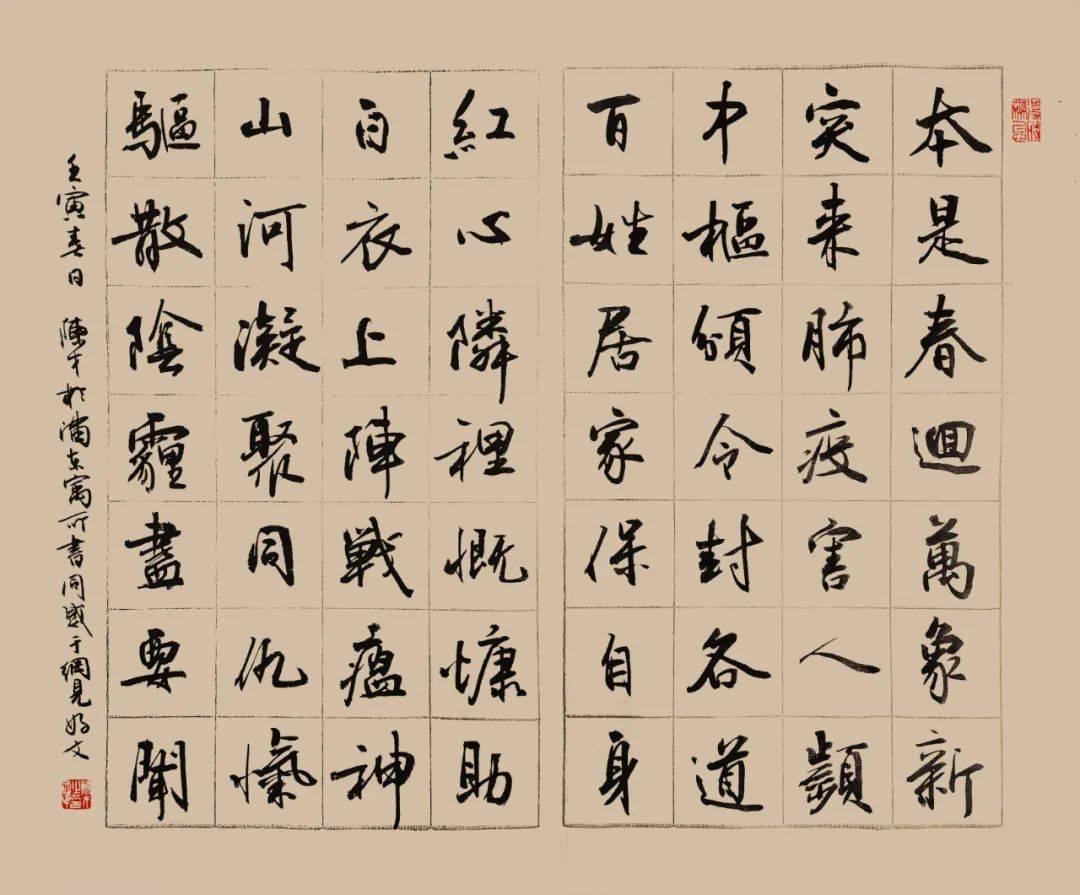 本是春迴萬象新
突来肺疫害人顰
中樞頒令封各道
百姓居家保自身
紅心隣裡慨慷助
白衣上陣戦瘟神
山河凝聚同仇愾
驅散陰霾盡要聞
壬寅春日 陳才於浦東寓所書同感于網見好文